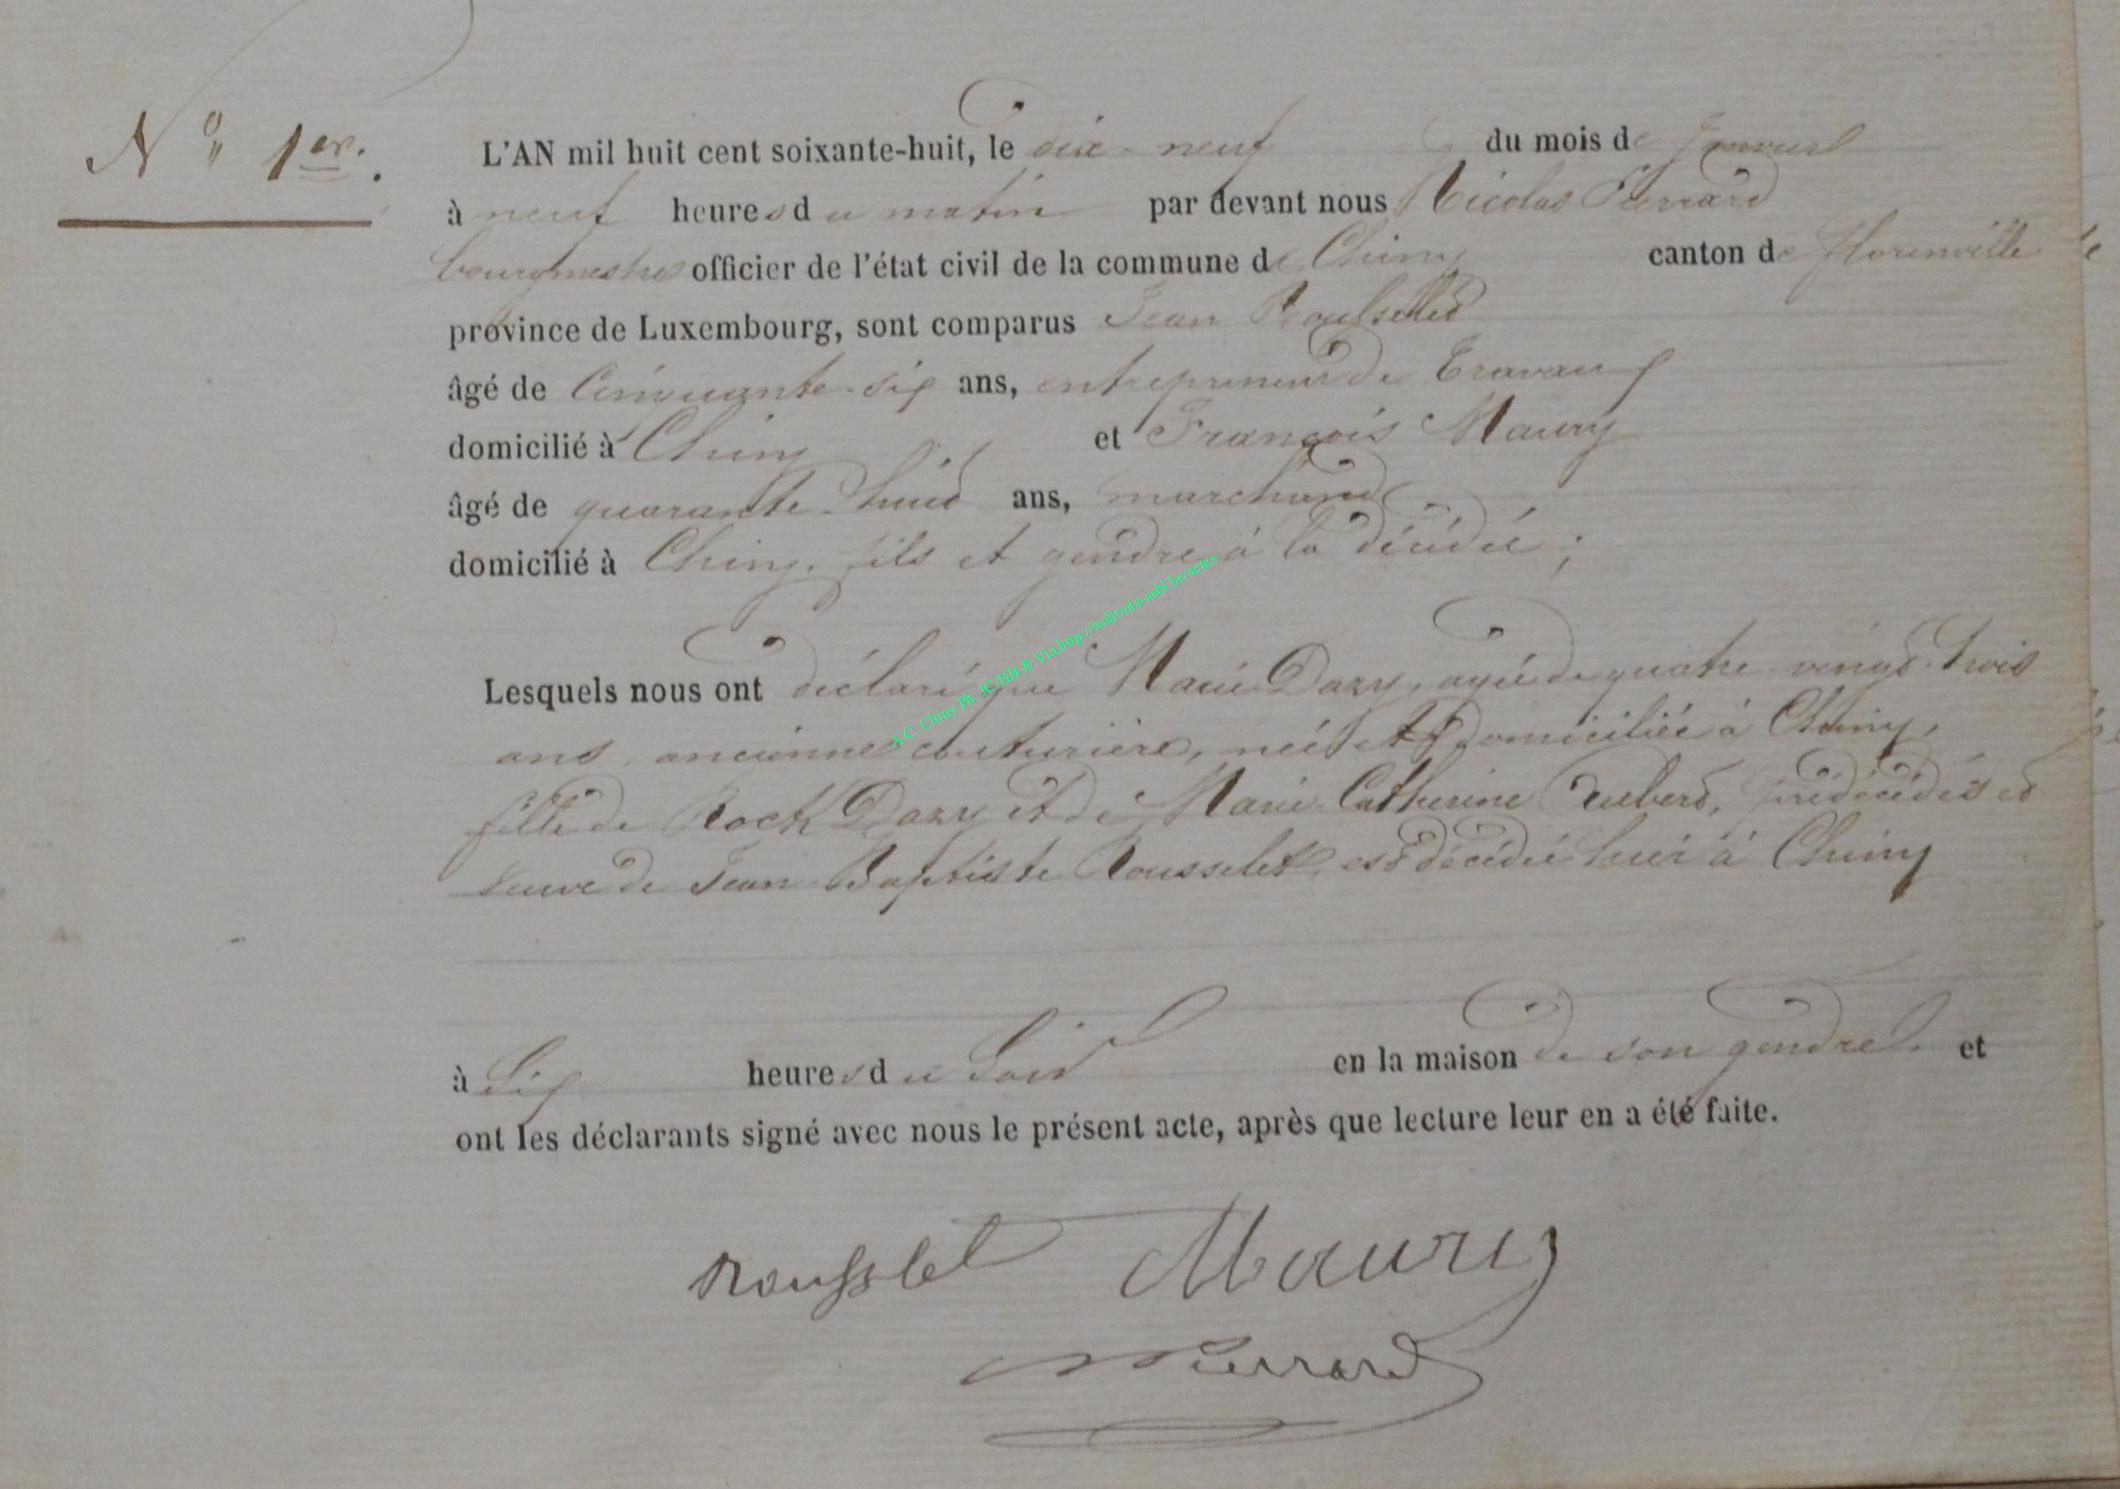 N° 1er.
L'AN mil huit cent soixante-huit, le dix-neuf du mois de Janvier
à neuf heures du matin par devant nous Nicolas Pierrard
bourgmestre officier de l'état civil de la commune de Chiny canton de florenville
province de Luxembourg, sont comparus Jean Rousselet
âgé de Cinquante-six ans, entrepreneur de Travaux
domicilié à Chiny et François Maury
âgé de quarante huit ans, marchand
domicilié à Chiny, fils et gendre à la décédée ;
Lesquels nous ont déclaré que Marie Dazy, agée de quatre-vingt-trois
ans, ancienne couturière, née et domiciliée à Chiny,
fille de Rock Dazy et de Marie Catherine prédécédés et
veuve de Jean Baptiste Rousselet, est décédée hier à Chiny
à Six heures du Soir en la maison de son gendre. et
ont les déclarants signé avec nous le présent acte, après que lecture leur en a été faite.
Rousslet Maury
Pierrard
A.C. Chiny Ph. JC/HB © Via http://wallonia-asbl.be/actes